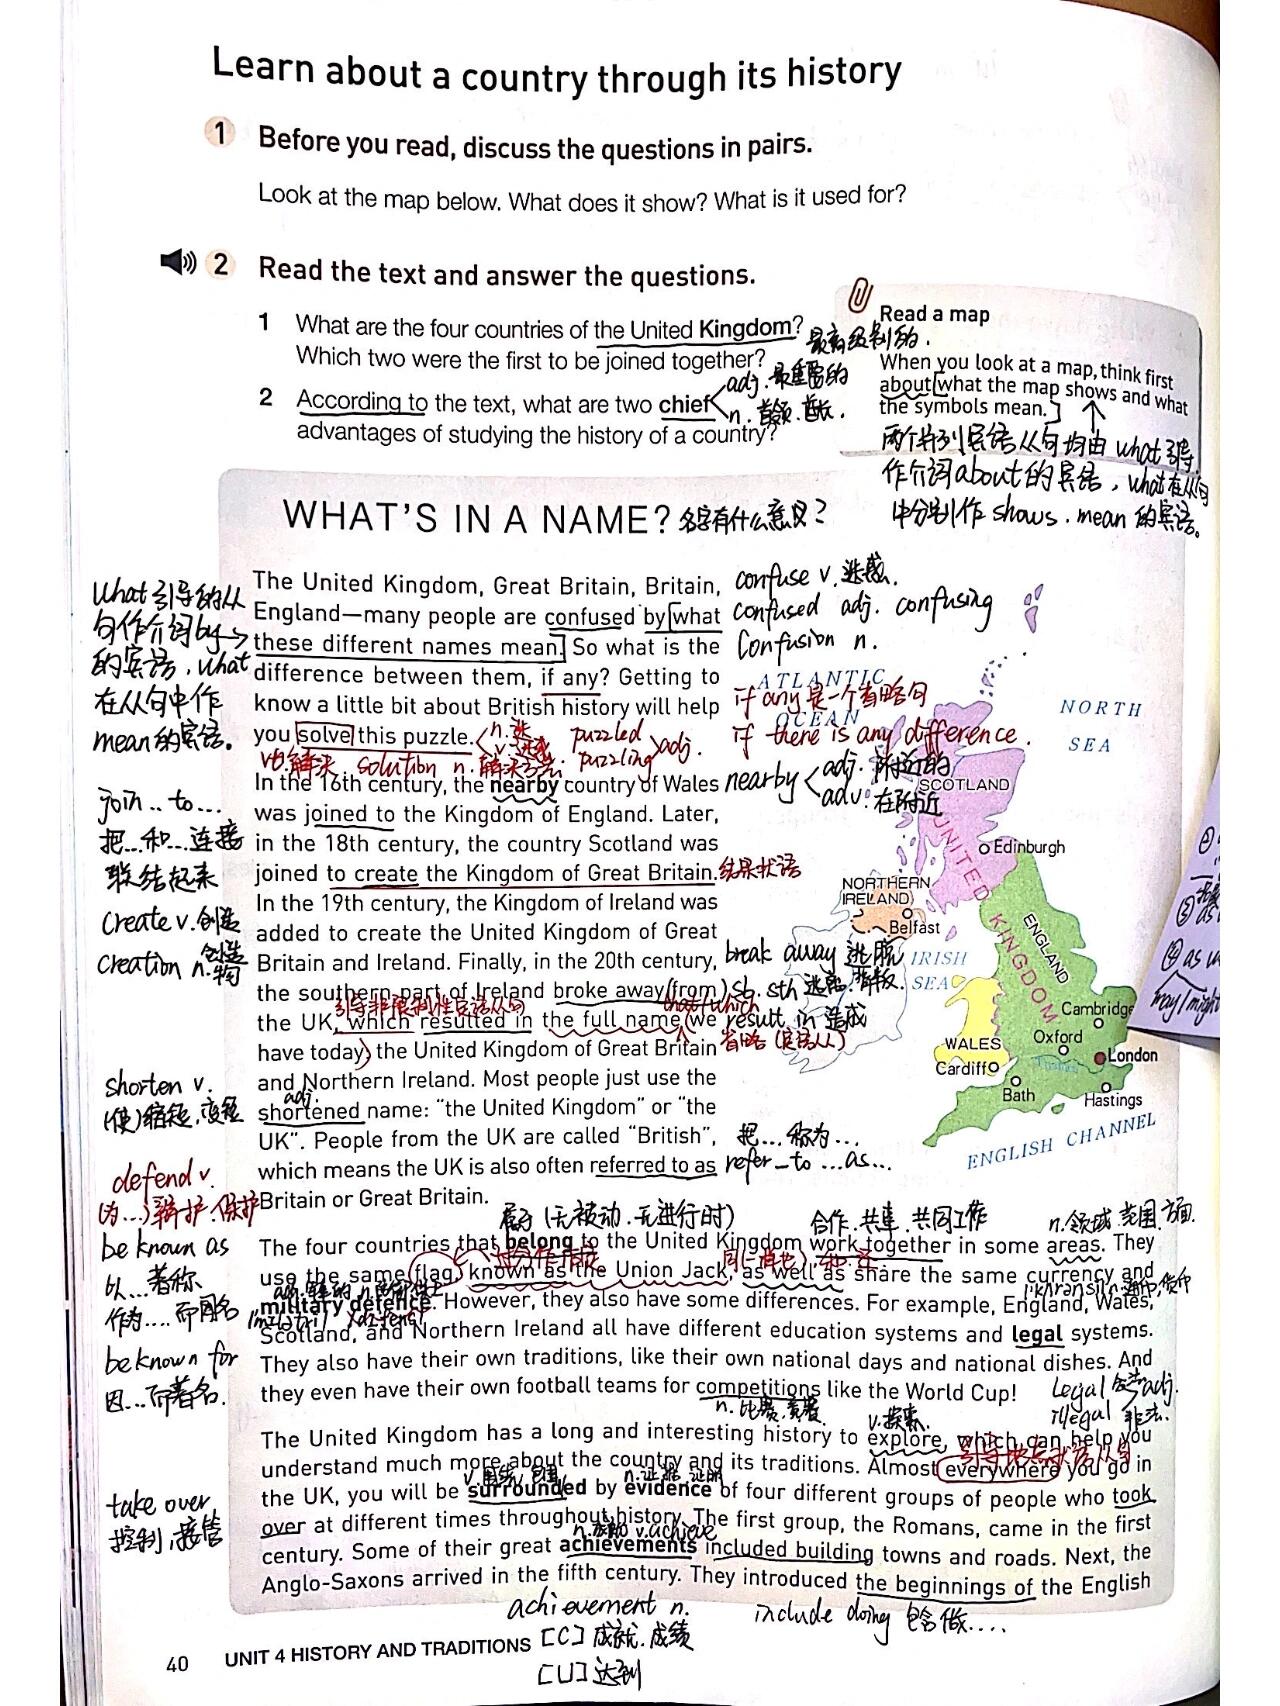 Learn about a country through its history
1 Before you read, discuss the questions in pairs.
Look at the map below. What does it show? What is it used for?
2 Read the text and answer the questions.
1 What are the four countries of the United Kingdom?
Which two were the first to be joined together?
2 According to the text, what are two chief
advantages of studying the history of a country?
最高级别的.
adj.最重要的
n.首领.酋长.
Read a map
When you look at a map, think first
about what the map shows and what
the symbols mean.
两个并列宾语从句均由what引导
作介词about的宾语，what在从句
中分别作shows.mean的宾语。
WHAT'S IN A NAME? 名字有什么意义？
The United Kingdom, Great Britain, Britain,
England—many people are confused by what
these different names mean. So what is the
difference between them, if any? Getting to
know a little bit about British history will help
you solve this puzzle.
what引导的从
句作介词by→
的宾语，what
在从句中作
mean的宾语。
confuse v.迷惑.
confused adj. confusing
confusion n.
if any是一个省略句
if there is any difference.
n.迷
v.迷惑.
puzzled
puzzling adj.
vt.解决 solution n.解决方法.
In the 16th century, the nearby country of Wales
was joined to the Kingdom of England. Later,
in the 18th century, the country Scotland was
joined to create the Kingdom of Great Britain.
In the 19th century, the Kingdom of Ireland was
added to create the United Kingdom of Great
Britain and Ireland. Finally, in the 20th century,
the southern part of Ireland broke away (from)
the UK, which resulted in the full name (we
have today) the United Kingdom of Great Britain
and Northern Ireland. Most people just use the
shortened name: "the United Kingdom" or "the
UK". People from the UK are called "British",
which means the UK is also often referred to as
Britain or Great Britain.
nearby
adj.附近的
adv.在附近
结果状语
break away 逃脱
sb. sth 逃离.背叛.
引导非限制性定语从句
that/which
result in 造成
省略(定语从)
adj.
把...称为...
refer_to ...as...
join..to...
把...和...连接
联结起来
create v.创造
creation n.创造物
shorten v.
(使)缩短.变短
defend v.
(为...)辩护.保护
be known as
以...著称.
作为....而闻名
be known for
因...而著名.
take over
控制.接管
ATLANTIC
OCEAN
NORTH
SEA
SCOTLAND
Edinburgh
UNITED KINGDOM
NORTHERN
IRELAND
Belfast
IRISH
SEA
ENGLAND
Cambridge
WALES
Oxford
Cardiff
London
Bath
Hastings
ENGLISH CHANNEL
属于(无被动.无进行时)
合作.共事.共同工作
n.领域.范围.方面
The four countries that belong to the United Kingdom work together in some areas. They
use the same flag, known as the Union Jack, as well as share the same currency and
military defence. However, they also have some differences. For example, England, Wales,
Scotland, and Northern Ireland all have different education systems and legal systems.
They also have their own traditions, like their own national days and national dishes. And
they even have their own football teams for competitions like the World Cup!
n.比赛.竞赛.
legal 合法adj.
illegal 非法.
v.探索.
The United Kingdom has a long and interesting history to explore, which can help you
understand much more about the country and its traditions. Almost everywhere you go in
the UK, you will be surrounded by evidence of four different groups of people who took
over at different times throughout history. The first group, the Romans, came in the first
century. Some of their great achievements included building towns and roads. Next, the
Anglo-Saxons arrived in the fifth century. They introduced the beginnings of the English
引导地点状语从句
n.证据.证明
v.achieve
achievement n.
[C]成就.成绩
[U]达到
include doing 包含做....
40 UNIT 4 HISTORY AND TRADITIONS